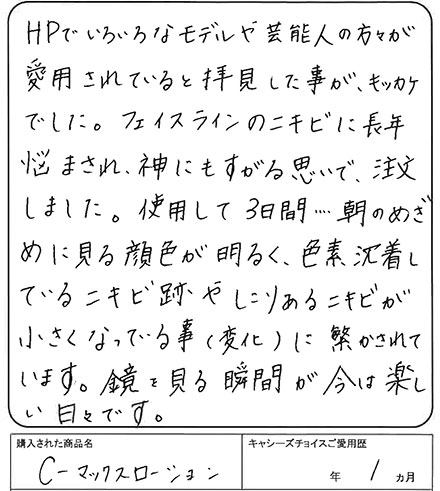 HPでいろいろなモデルや芸能人の方々が
愛用されていると拝見した事が、キッカケ
でした。フェイスラインのニキビに長年
悩まされ、神にもすがる思いで、注文
しました。使用して3日間…朝のめざ
めに見る顔色が明るく、色素沈着し
ているニキビ跡やしこりあるニキビが
小さくなっている事(変化)に驚かされて
います。鏡を見る瞬間が今は楽し
い日々です。
購入された商品名
C-マックスローション
キャシーズチョイスご愛用歴
年 1 カ月